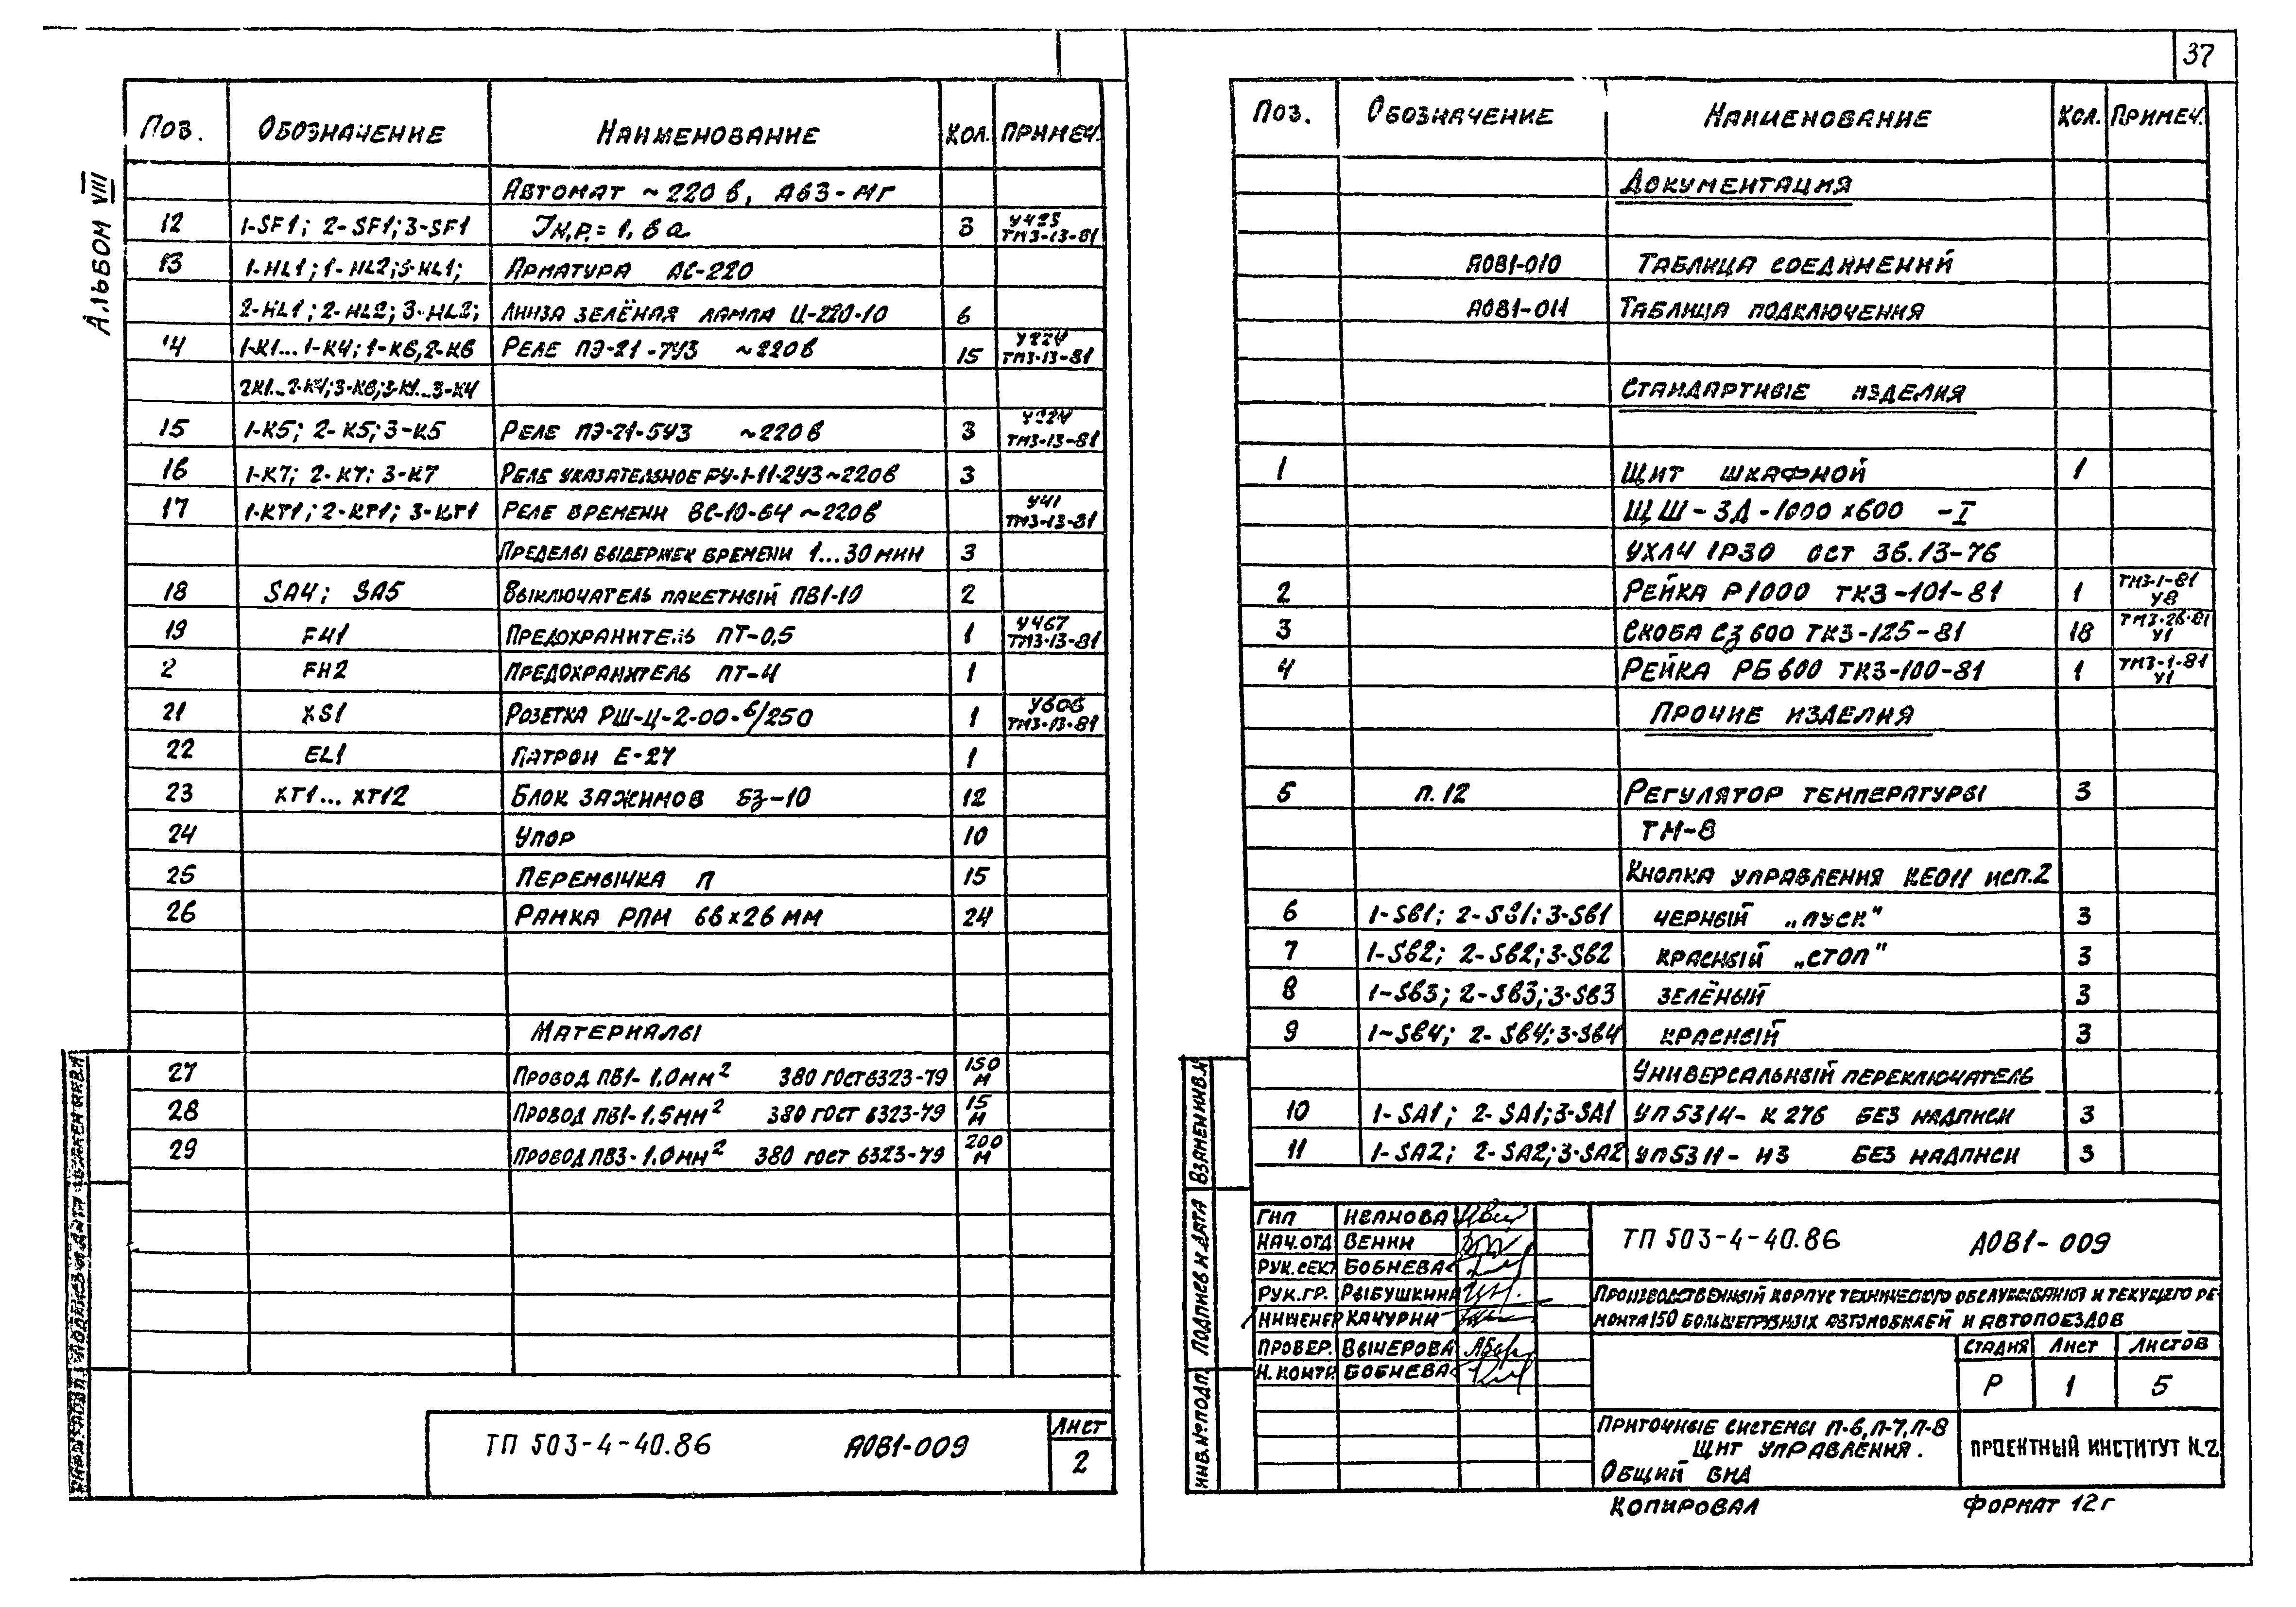 37
АЛЬБОМ VIII
ПОЗ. ОБОЗНАЧЕНИЕ НАИМЕНОВАНИЕ КОЛ. ПРИМЕЧ.
АВТОМАТ ~220 В, А63-МГ
12 1-SF1; 2-SF1; 3-SF1 Iн.р.=1,6а 3 У423 ТМ3-13-81
13 1-HL1; 1-HL2; 3-HL1; АРМАТУРА АС-220
2-HL1; 2-HL2; 3-HL2; ЛИНЗА ЗЕЛЁНАЯ ЛАМПА Ц-220-10 6
14 1-К1...1-К4; 1-К6, 2-К6 РЕЛЕ ПЭ-21-7У3 ~220В 15 У224 ТМ3-13-81
2К1...2-К4; 3-К6; 3-К1...3-К4
15 1-К5; 2-К5; 3-К5 РЕЛЕ ПЭ-21-5У3 ~220В 3 У224 ТМ3-13-81
16 1-К7; 2-К7; 3-К7 РЕЛЕ УКАЗАТЕЛЬНОЕ РУ-1-11-2У3 ~220В 3
17 1-КТ1; 2-КТ1; 3-КТ1 РЕЛЕ ВРЕМЕНИ ВС-10-64 ~220В У41 ТМ3-13-81
ПРЕДЕЛЫ ВЫДЕРЖЕК ВРЕМЕНИ 1...30 МИН 3
18 SA4; SA5 ВЫКЛЮЧАТЕЛЬ ПАКЕТНЫЙ ПВ1-10 2
19 FU1 ПРЕДОХРАНИТЕЛЬ ПТ-0,5 1 У467 ТМ3-13-81
2 FU2 ПРЕДОХРАНИТЕЛЬ ПТ-4 1
21 XS1 РОЗЕТКА РШ-Ц-2-00-6/250 1 У606 ТМ3-13-81
22 EL1 ПАТРОН Е-27 1
23 ХТ1...ХТ12 БЛОК ЗАЖИМОВ БЗ-10 12
24 УПОР 10
25 ПЕРЕМЫЧКА П 15
26 РАМКА РПМ 66х26 ММ 24
МАТЕРИАЛЫ
27 ПРОВОД ПВ1-1.0 ММ² 380 ГОСТ 6323-79 150 М
28 ПРОВОД ПВ1-1.5 ММ² 380 ГОСТ 6323-79 15 М
29 ПРОВОД ПВ3-1.0 ММ² 380 ГОСТ 6323-79 200 М
ТП 503-4-40.86 АОВ1-009
ЛИСТ
2
ПОЗ. ОБОЗНАЧЕНИЕ НАИМЕНОВАНИЕ КОЛ. ПРИМЕЧ.
ДОКУМЕНТАЦИЯ
АОВ1-010 ТАБЛИЦА СОЕДИНЕНИЙ
АОВ1-011 ТАБЛИЦА ПОДКЛЮЧЕНИЯ
СТАНДАРТНЫЕ ИЗДЕЛИЯ
1 ЩИТ ШКАФНОЙ 1
ЩШ-ЗД-1000х600 -I
УХЛ4 IР30 ОСТ 36.13-76
2 РЕЙКА Р1000 ТК3-101-81 1 ТМ3-1-81 У8
3 СКОБА СЗ 600 ТК3-125-81 18 ТМ3-26-81 У1
4 РЕЙКА РБ 600 ТК3-100-81 1 ТМ3-1-81 У1
ПРОЧИЕ ИЗДЕЛИЯ
5 п.12 РЕГУЛЯТОР ТЕМПЕРАТУРЫ 3
ТМ-8
КНОПКА УПРАВЛЕНИЯ КЕ011 исп.2
6 1-SB1; 2-SB1; 3-SB1 ЧЕРНЫЙ „ПУСК" 3
7 1-SB2; 2-SB2; 3-SB2 КРАСНЫЙ „СТОП" 3
8 1-SB3; 2-SB3; 3-SB3 ЗЕЛЁНЫЙ 3
9 1-SB4; 2-SB4; 3-SB4 КРАСНЫЙ 3
УНИВЕРСАЛЬНЫЙ ПЕРЕКЛЮЧАТЕЛЬ
10 1-SA1; 2-SA1; 3-SA1 УП5314-К276 БЕЗ НАДПИСИ 3
11 1-SA2; 2-SA2; 3-SA2 УП5311-И3 БЕЗ НАДПИСИ 3
ИНВ.№ПОДЛ. ПОДПИСЬ И ДАТА ВЗАМЕН ИНВ.№
ГИП ИВАНОВА
НАЧ.ОТД ВЕНИН
РУК.СЕКТ БОБНЕВА
РУК.ГР. РЫБУШКИНА
ИНЖЕНЕР КАЧУРИН
ПРОВЕР. ВЫЧЕРОВА
Н.КОНТР. БОБНЕВА
ТП 503-4-40.86 АОВ1-009
ПРОИЗВОДСТВЕННЫЙ КОРПУС ТЕХНИЧЕСКОГО ОБСЛУЖИВАНИЯ И ТЕКУЩЕГО РЕ-
МОНТА 150 БОЛЬШЕГРУЗНЫХ АВТОМОБИЛЕЙ И АВТОПОЕЗДОВ
СТАДИЯ ЛИСТ ЛИСТОВ
Р 1 5
ПРИТОЧНЫЕ СИСТЕМЫ П-6, П-7, П-8
ЩИТ УПРАВЛЕНИЯ.
ОБЩИЙ ВИД
ПРОЕКТНЫЙ ИНСТИТУТ N.2
КОПИРОВАЛ ФОРМАТ 12г